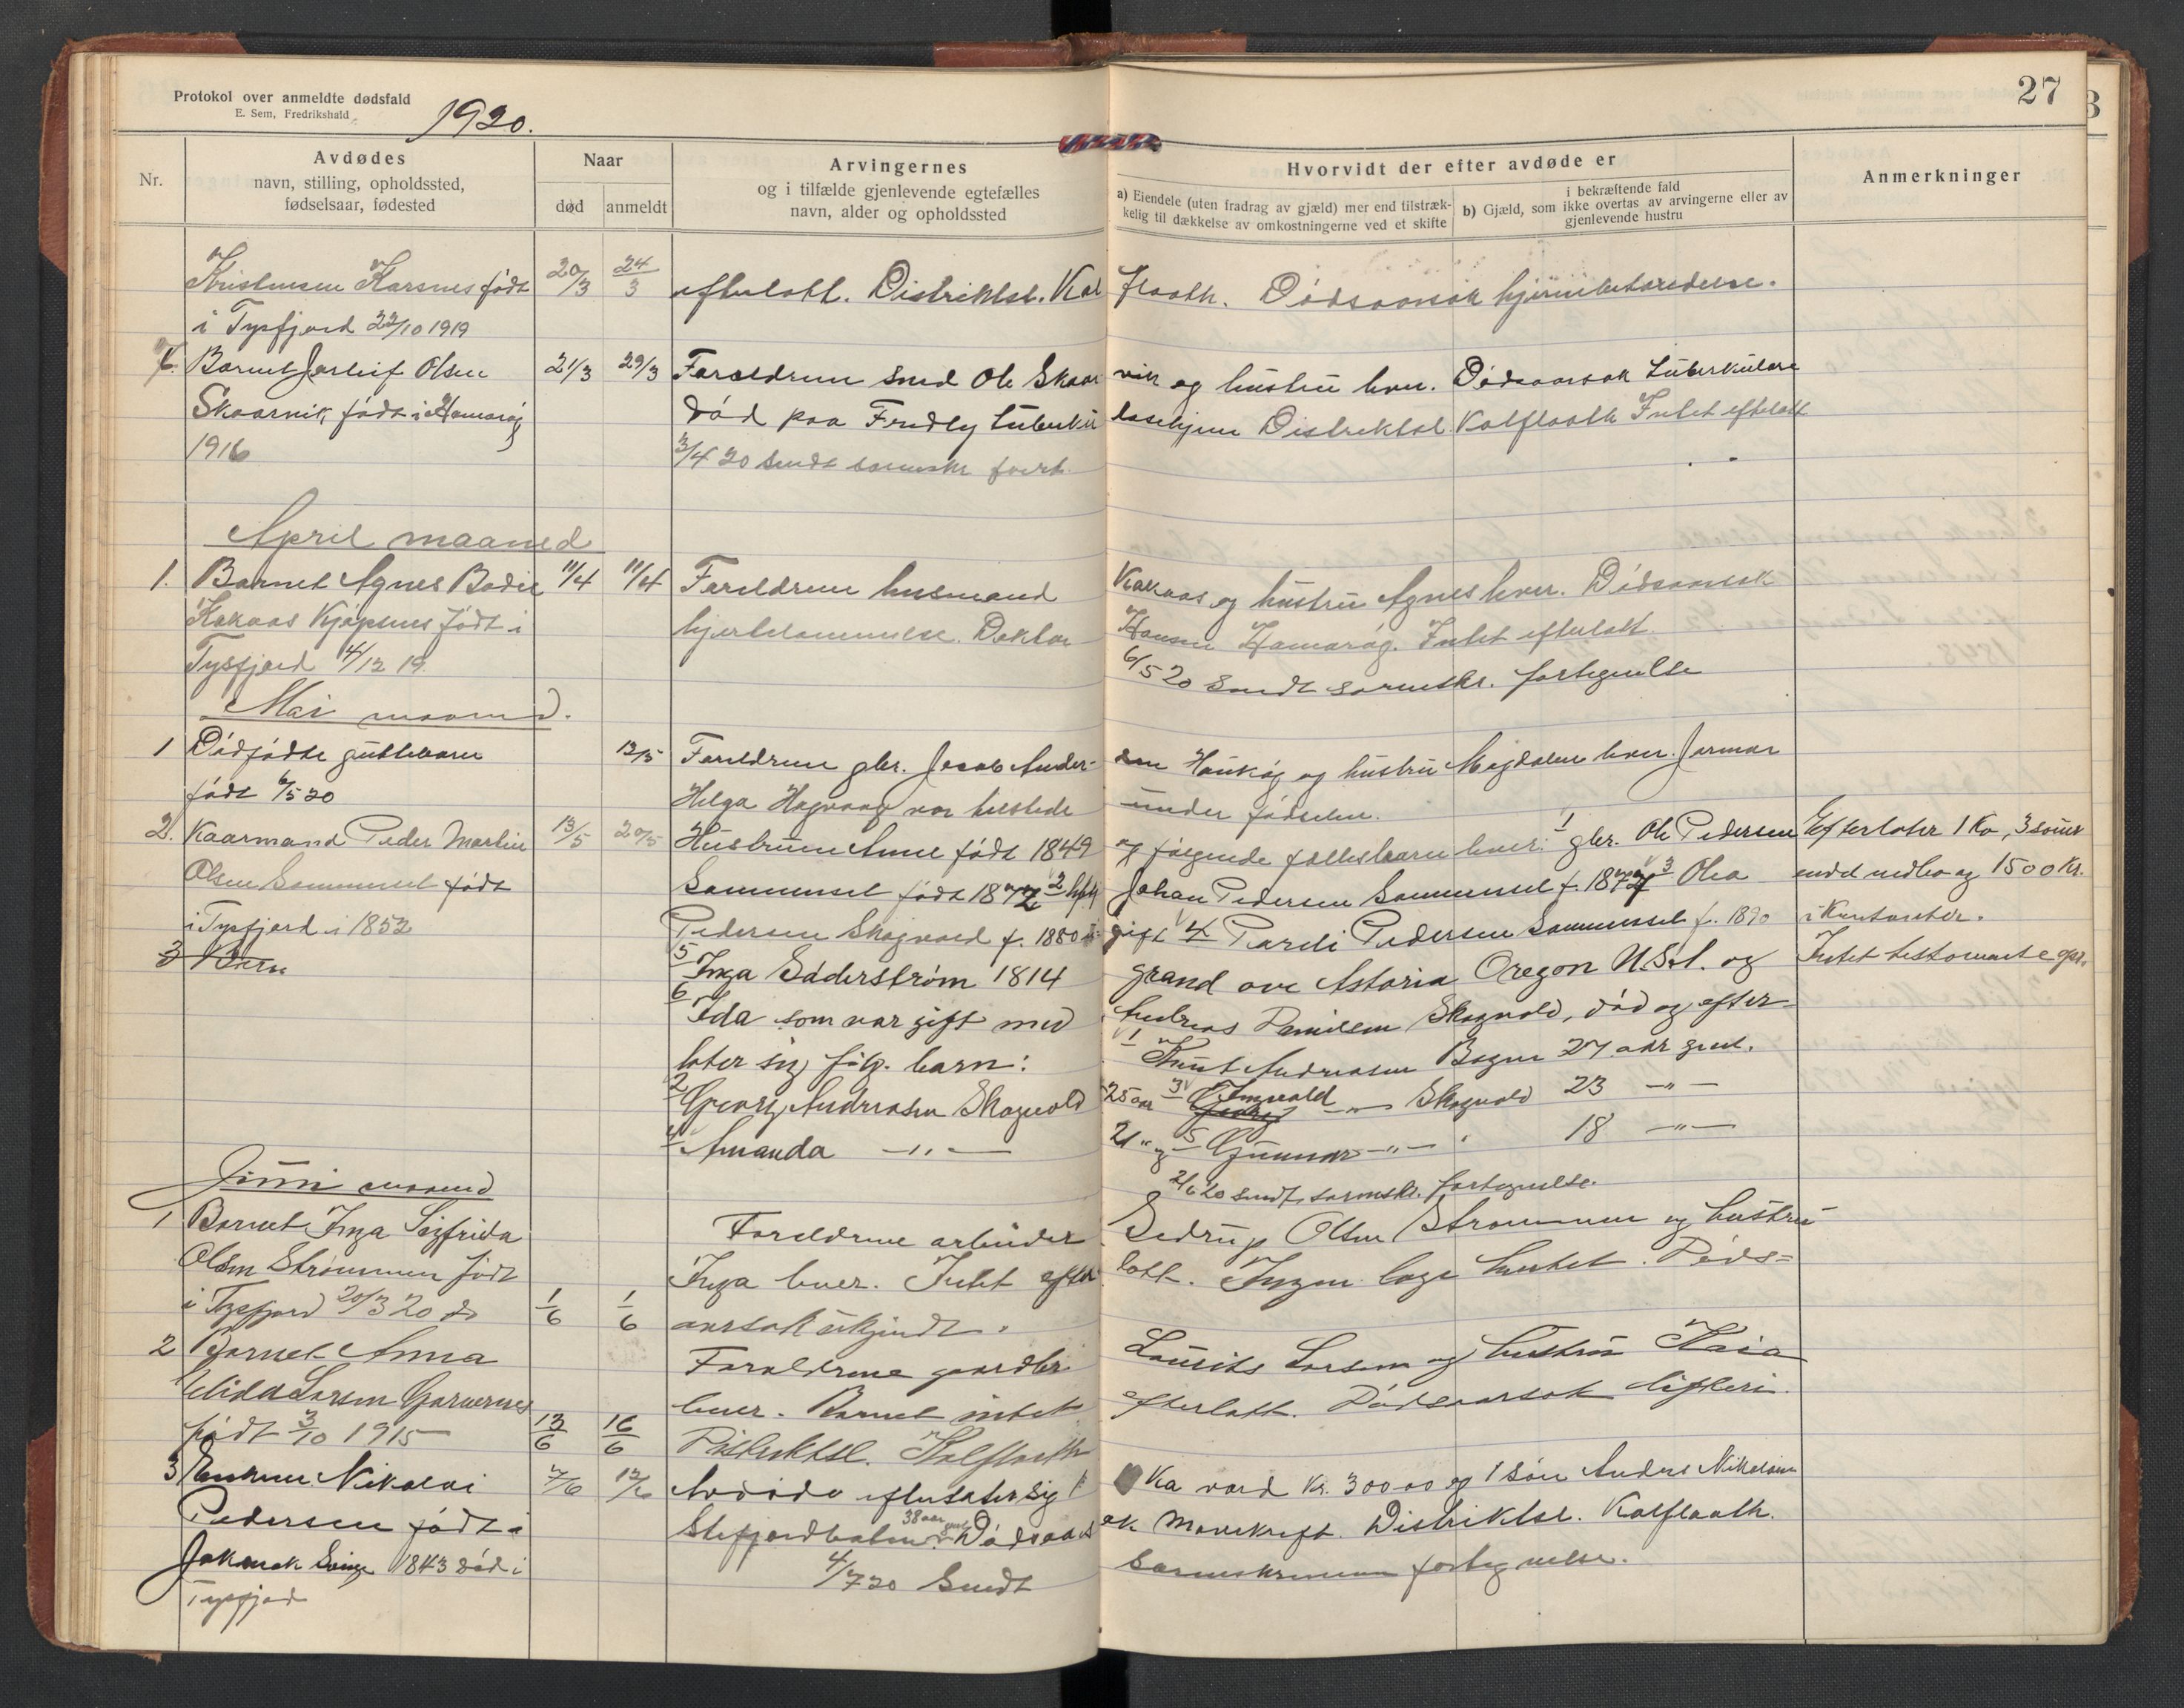 Protokol over anmeldte dødsfald
E. Sem, Fredrikshald
1920.
27
Nr.
Avdødes
navn, stilling, opholdssted,
fødselsaar, fødested
Naar
død
anmeldt
Arvingernes
og i tilfælde gjenlevende egtefælles
navn, alder og opholdssted
Hvorvidt der efter avdøde er
a) Eiendele (uten fradrag av gjæld) mer end tilstræk-
kelig til dækkelse av omkostningerne ved et skifte
i bekræftende fald
b) Gjæld, som ikke overtas av arvingerne eller av
gjenlevende hustru
Anmerkninger
Kristensen Korsnes født 20/3 24/3 efterlatt. Distriktsl. Kal flaath. Dødsaarsak hjernebetændelse.
i Tysfjord 22/10 1919
Barnet Jarleif Olsen 21/3 29/3 Forældrene Smed Ole Skaar vik og hustru hver. Dødsaarsak Tuberkulose
Skaarvik, født i Hamarøy Død paa Fredly tuberku losehjem Distriktsl. Kalflaath Intet efterlatt
1916 3/4 20 Sendt sorenskr fort.
April maaned
1. Barnet Agnes Bodil 11/4 11/4 Forældrene husmand Kakaas og hustru Agnes hver. Dødsaarsak
Kakaas Kjøpsnes født i hjertelammelse. Doktor Hansen Hamarøy. Intet efterlatt.
Tysfjord 4/12 19. 6/5 20 Sendt sorenskr. fortegnelse
Mai maaned.
1 Dødfødte guttebarn 12/5 Forældrene gbr. Jacob Ander- sen Haukøy og hustru Magdalene hver. Jormor
født 6/5 20 Helga Hagvaag var tilstede under fødselen.
2. Kaarmand Peder Martin 13/5 20/5 Hustruen Anne født 1849 og følgende fællesbarn hver: 1 gbr. Ole Pedersen Efterlater 1 Ko, 3 sauer
Olsen Sommerset født Sommerset født 1872 2 Johan Pedersen Sommerset f. 1877 3 Olea
i Tysfjord i 1852 Pedersen Skogvold f. 1880 gift 4 Pedersen Sommerset f. 1890 i Kontanter.
og 1500 Kr.
3 Barn
5 Inga Søderstrøm 1814 grand ave Astoria Oregon U.S.A. og Intet testamente
6 Ida som var gift med Andreas Danielsen Skogvold, død og efter-
later sig følg. barn: 1 Knut Andreasen Bogen 27 aar gml.
2 Georg Andreasen Skogvold 25 aar 3 Ingvald —"— Skogvold 23 —"—
4 Amanda —"— 21 " og 5 Gunnar —"— 18 —"—
2/6 20 sendt sorenskr. fortegnelse.
Juni maaned
1 Barnet Inga Sigfrida Forældrene arbeider Sedrup Olsen Strømmen og hustru
Olsen Strømmen født Inga hver. Intet efter latt. Ingen læge hentet. Døds=
i Tysfjord 20/3 20 1/6 1/6 aarsak ukjendt.
2 Barnet Anna Forældrene gaardbr. Laurits Larsen og hustru Kaia
Elida Larsen hver. Barnet intet efterlatt. Dødsaarsak difteri.
født 3/10 1915 13/6 16/6 Distriktsl. Kalflaath
3 Enkem. Nikolai 7/6 12/6 Avdøde efterlater sig 1 Ko værd kr. 300 00 og 1 søn Anders Nikolaisen
Pedersen født i Stefjordbotn 38 aar gml. Dødsaars ak Mavekreft. Distriktsl. Kalflaath.
Jokmok 1843 død i 4/7 20 Sendt Sorenskriveren fortegnelse.
Tysfjord